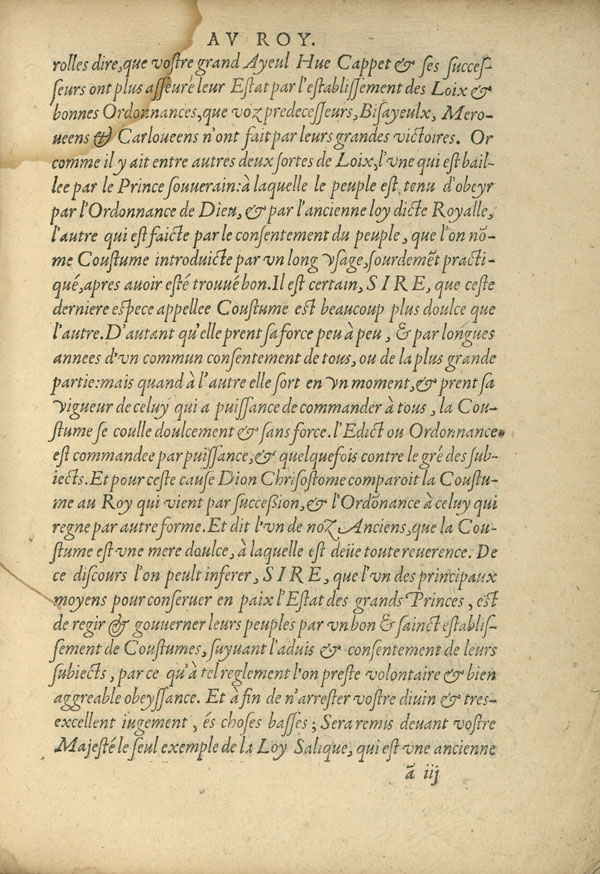 AV ROY.
rolles dire, que vostre grand Ayeul Hue Cappet & ses succes-
seurs ont plus asseuré leur Estat par l'establissement des Loix &
bonnes Ordonnances, que voz predecesseurs, Bisayeulx, Mero-
ueens & Carloueens n'ont fait par leurs grandes victoires. Or
comme il y ait entre autres deux sortes de Loix, l'vne qui est bail-
lee par le Prince souuerain: à laquelle le peuple est tenu d'obeyr
par l'Ordonnance de Dieu, & par l'ancienne loy dicte Royalle,
l'autre qui est faicte par le consentement du peuple, que l'on nō-
me Coustume introduicte par vn long vsage, sourdemēt practi-
qué, apres auoir esté trouué bon. Il est certain, SIRE, que ceste
derniere espece appellee Coustume est beaucoup plus doulce que
l'autre. D'autant qu'elle prent sa force peu à peu, & par longues
annees d'vn commun consentement de tous, ou de la plus grande
partie: mais quand à l'autre elle sort en vn moment, & prent sa
vigueur de celuy qui a puissance de commander à tous, la Cou-
stume se coulle doulcement & sans force. l'Edict ou Ordonnance
est commandee par puissance, & quelquefois contre le gré des sub-
iects. Et pour ceste cause Dion Chrisostome comparoit la Coustu-
me au Roy qui vient par succession, & l'Ordōnance à celuy qui
regne par autre forme. Et dit l'vn de noz Anciens, que la Cou-
stume est vne mere doulce, à laquelle est deüe toute reuerence. De
ce discours l'on peult inferer, SIRE, que l'vn des principaux
moyens pour conseruer en paix l'Estat des grands Princes, est
de regir & gouuerner leurs peuples par vn bon & sainct establis-
sement de Coustumes, suyuant l'aduis & consentement de leurs
subiects, par ce qu'à tel reglement l'on preste volontaire & bien
aggreable obeyssance. Et à fin de n'arrester vostre diuin & tres-
excellent iugement, és choses basses; Sera remis deuant vostre
Majesté le seul exemple de la Loy Salique, qui est vne ancienne
ã iij